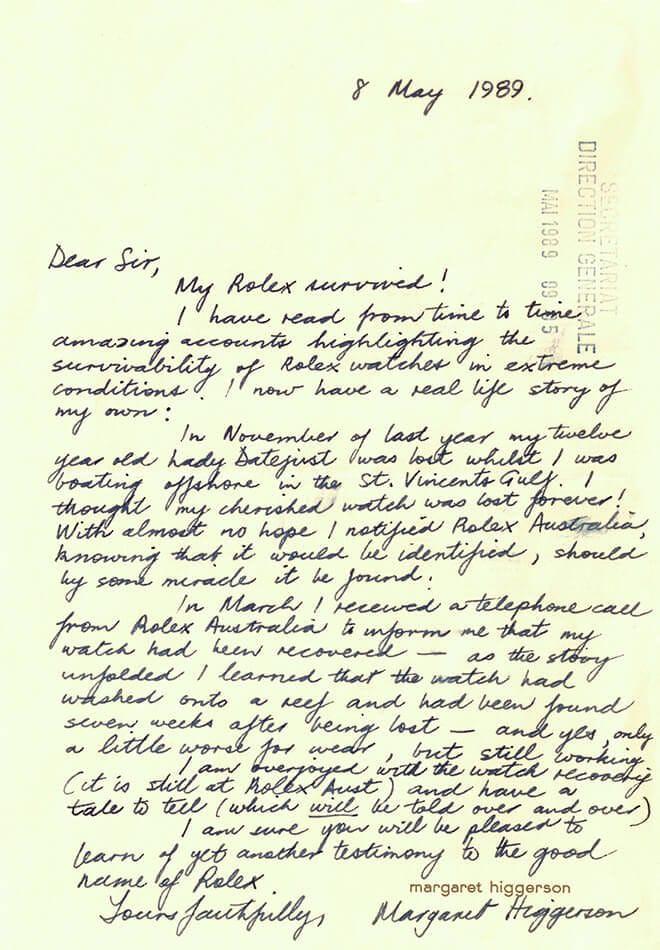 8 May 1989.
SECRETARIAT
DIRECTION GENERALE
MAI 1989 09 05
Dear Sir,
My Rolex survived!
I have read from time to time
amazing accounts highlighting the
survivability of Rolex watches in extreme
conditions. I now have a real life story of
my own:
In November of last year my twelve
year old Lady Datejust was lost whilst I was
boating offshore in the St. Vincents Gulf. I
thought my cherished watch was lost forever!
With almost no hope I notified Rolex Australia,
knowing that it would be identified, should
by some miracle it be found.
In March I received a telephone call
from Rolex Australia to inform me that my
watch had been recovered — as the story
unfolded I learned that the watch had
washed onto a reef and had been found
seven weeks after being lost — and yes, only
a little worse for wear, but still working
I am overjoyed with the watch recovery
(it is still at Rolex Aust) and have a
tale to tell (which will be told over and over)
I am sure you will be pleased to
learn of yet another testimony to the good
name of Rolex.
margaret higgerson
Yours faithfully, Margaret Higgerson